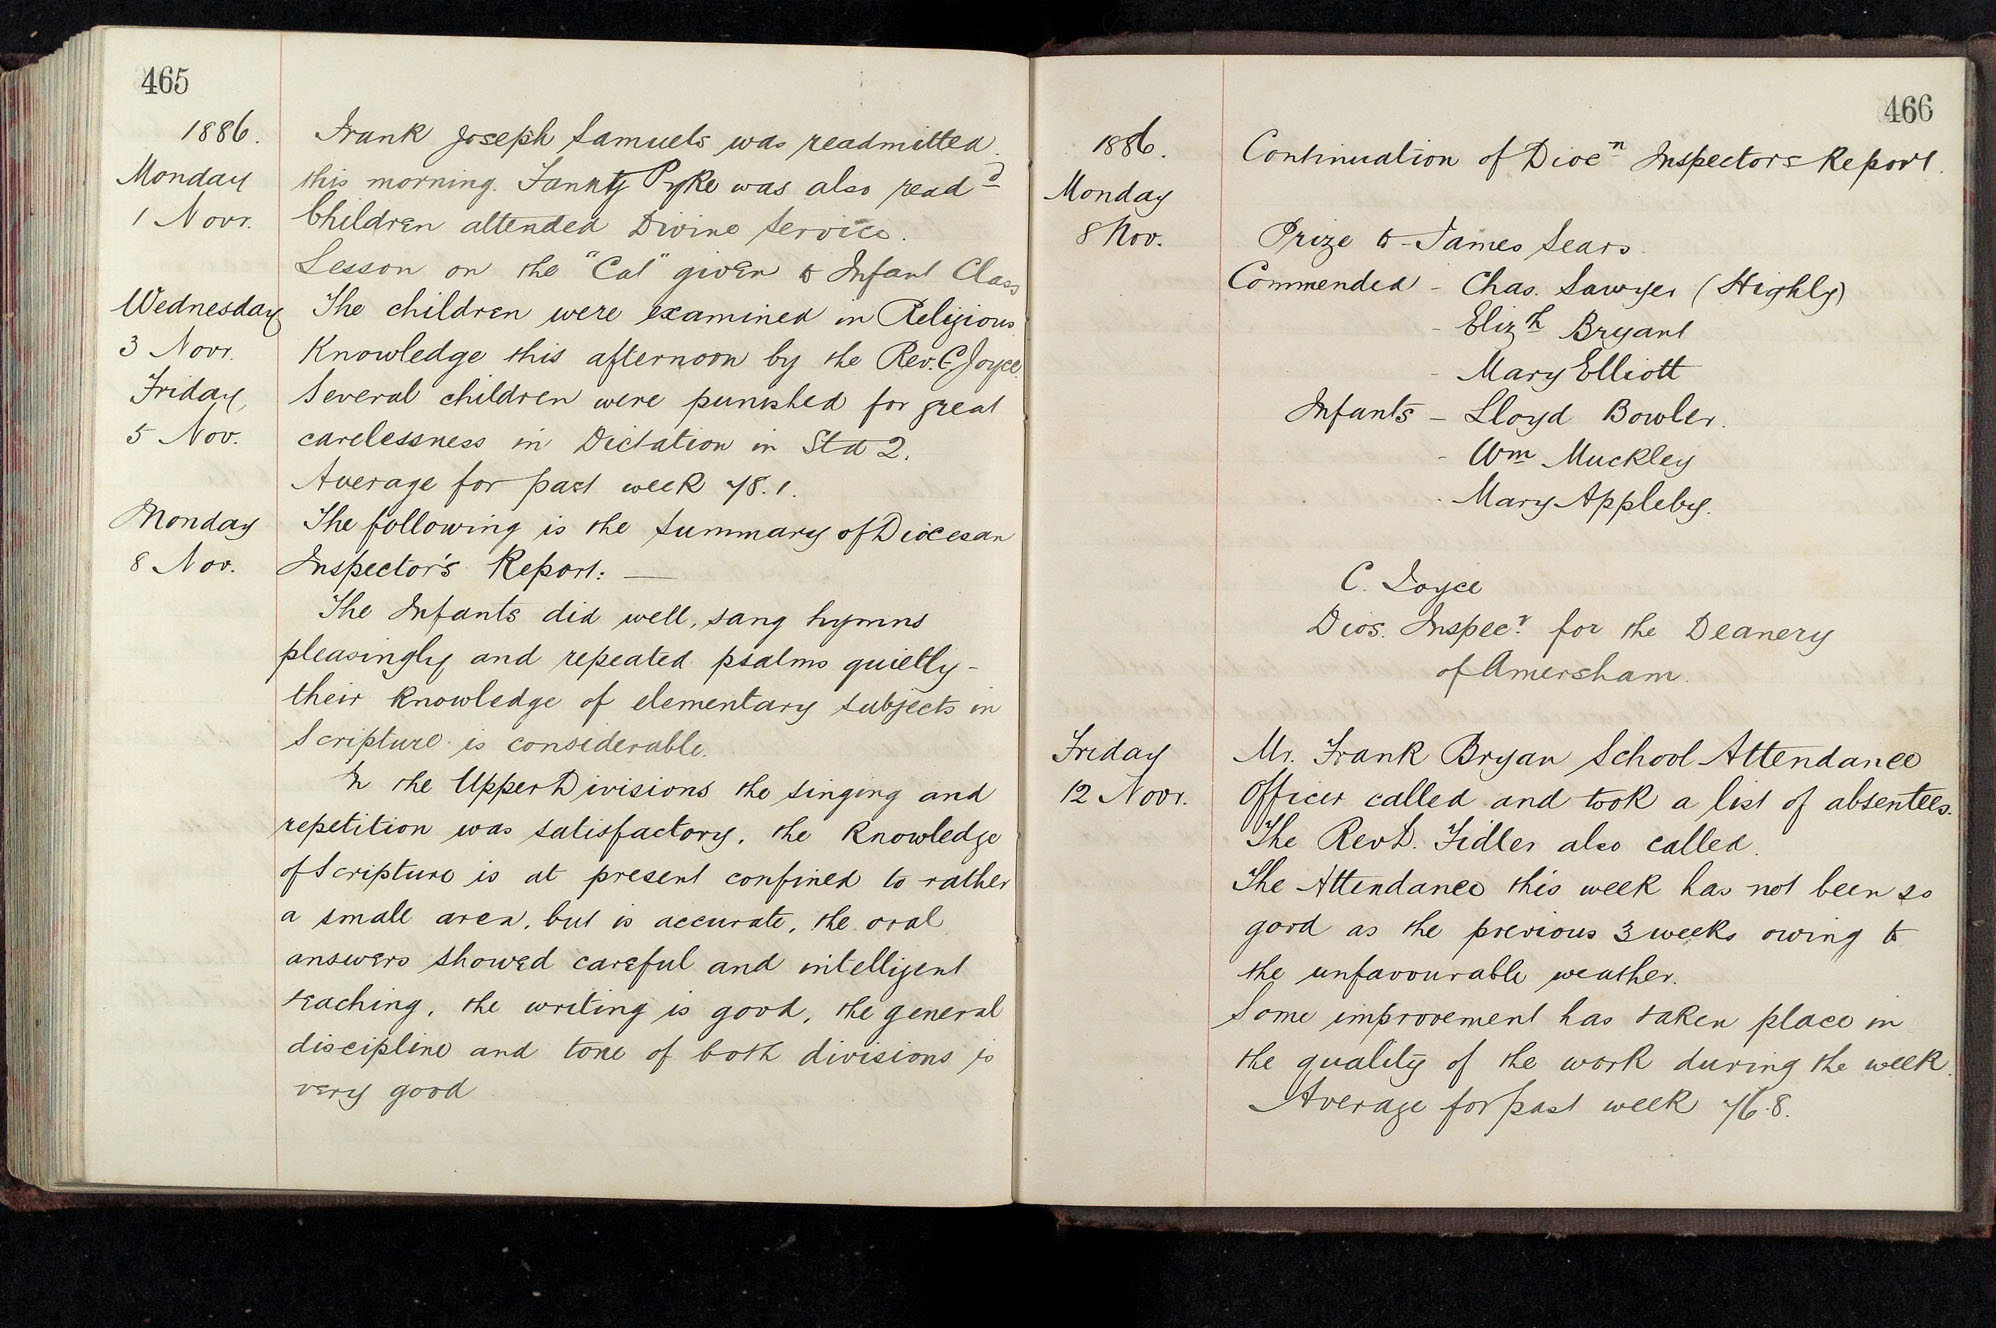 465
1886.
Frank Joseph Samuels was readmitted
Monday
this morning. Fanny Pyke was also read^d
1 Novr.
Children attended Divine Service.
Lesson on the "Cat" given to Infant Class
Wednesday
The children were examined in Religious
3 Novr.
Knowledge this afternoon by the Rev. C. Joyce.
Friday,
Several children were punished for great
5 Nov.
carelessness in Dictation in Std 2.
Average for past week 78.1.
Monday
The following is the Summary of Diocesan
8 Nov.
Inspector's Report: —
The Infants did well, sang hymns
pleasingly and repeated psalms quietly -
their knowledge of elementary subjects in
Scripture is considerable.
In the Upper Divisions the singing and
repetition was satisfactory, the knowledge
of Scripture is at present confined to rather
a small area, but is accurate, the oral
answers showed careful and intelligent
teaching, the writing is good, the general
discipline and tone of both divisions is
very good
466
1886.
Continuation of Dioc^n Inspectors Report.
Monday
8 Nov.
Prize to - James Sears.
Commended - Chas. Sawyer (Highly)
- Eliz^th Bryant
- Mary Elliott
Infants - Lloyd Bowler.
- Wm Muckley
- Mary Appleby.
C. Joyce
Dios. Inspec^r for the Deanery
of Amersham.
Friday
Mr. Frank Bryan School Attendance
12 Novr.
Officer called and took a list of absentees.
The Rev D. Fidler also called.
The Attendance this week has not been so
good as the previous 3 weeks owing to
the unfavourable weather.
Some improvement has taken place in
the quality of the work during the week.
Average for past week 76.8.